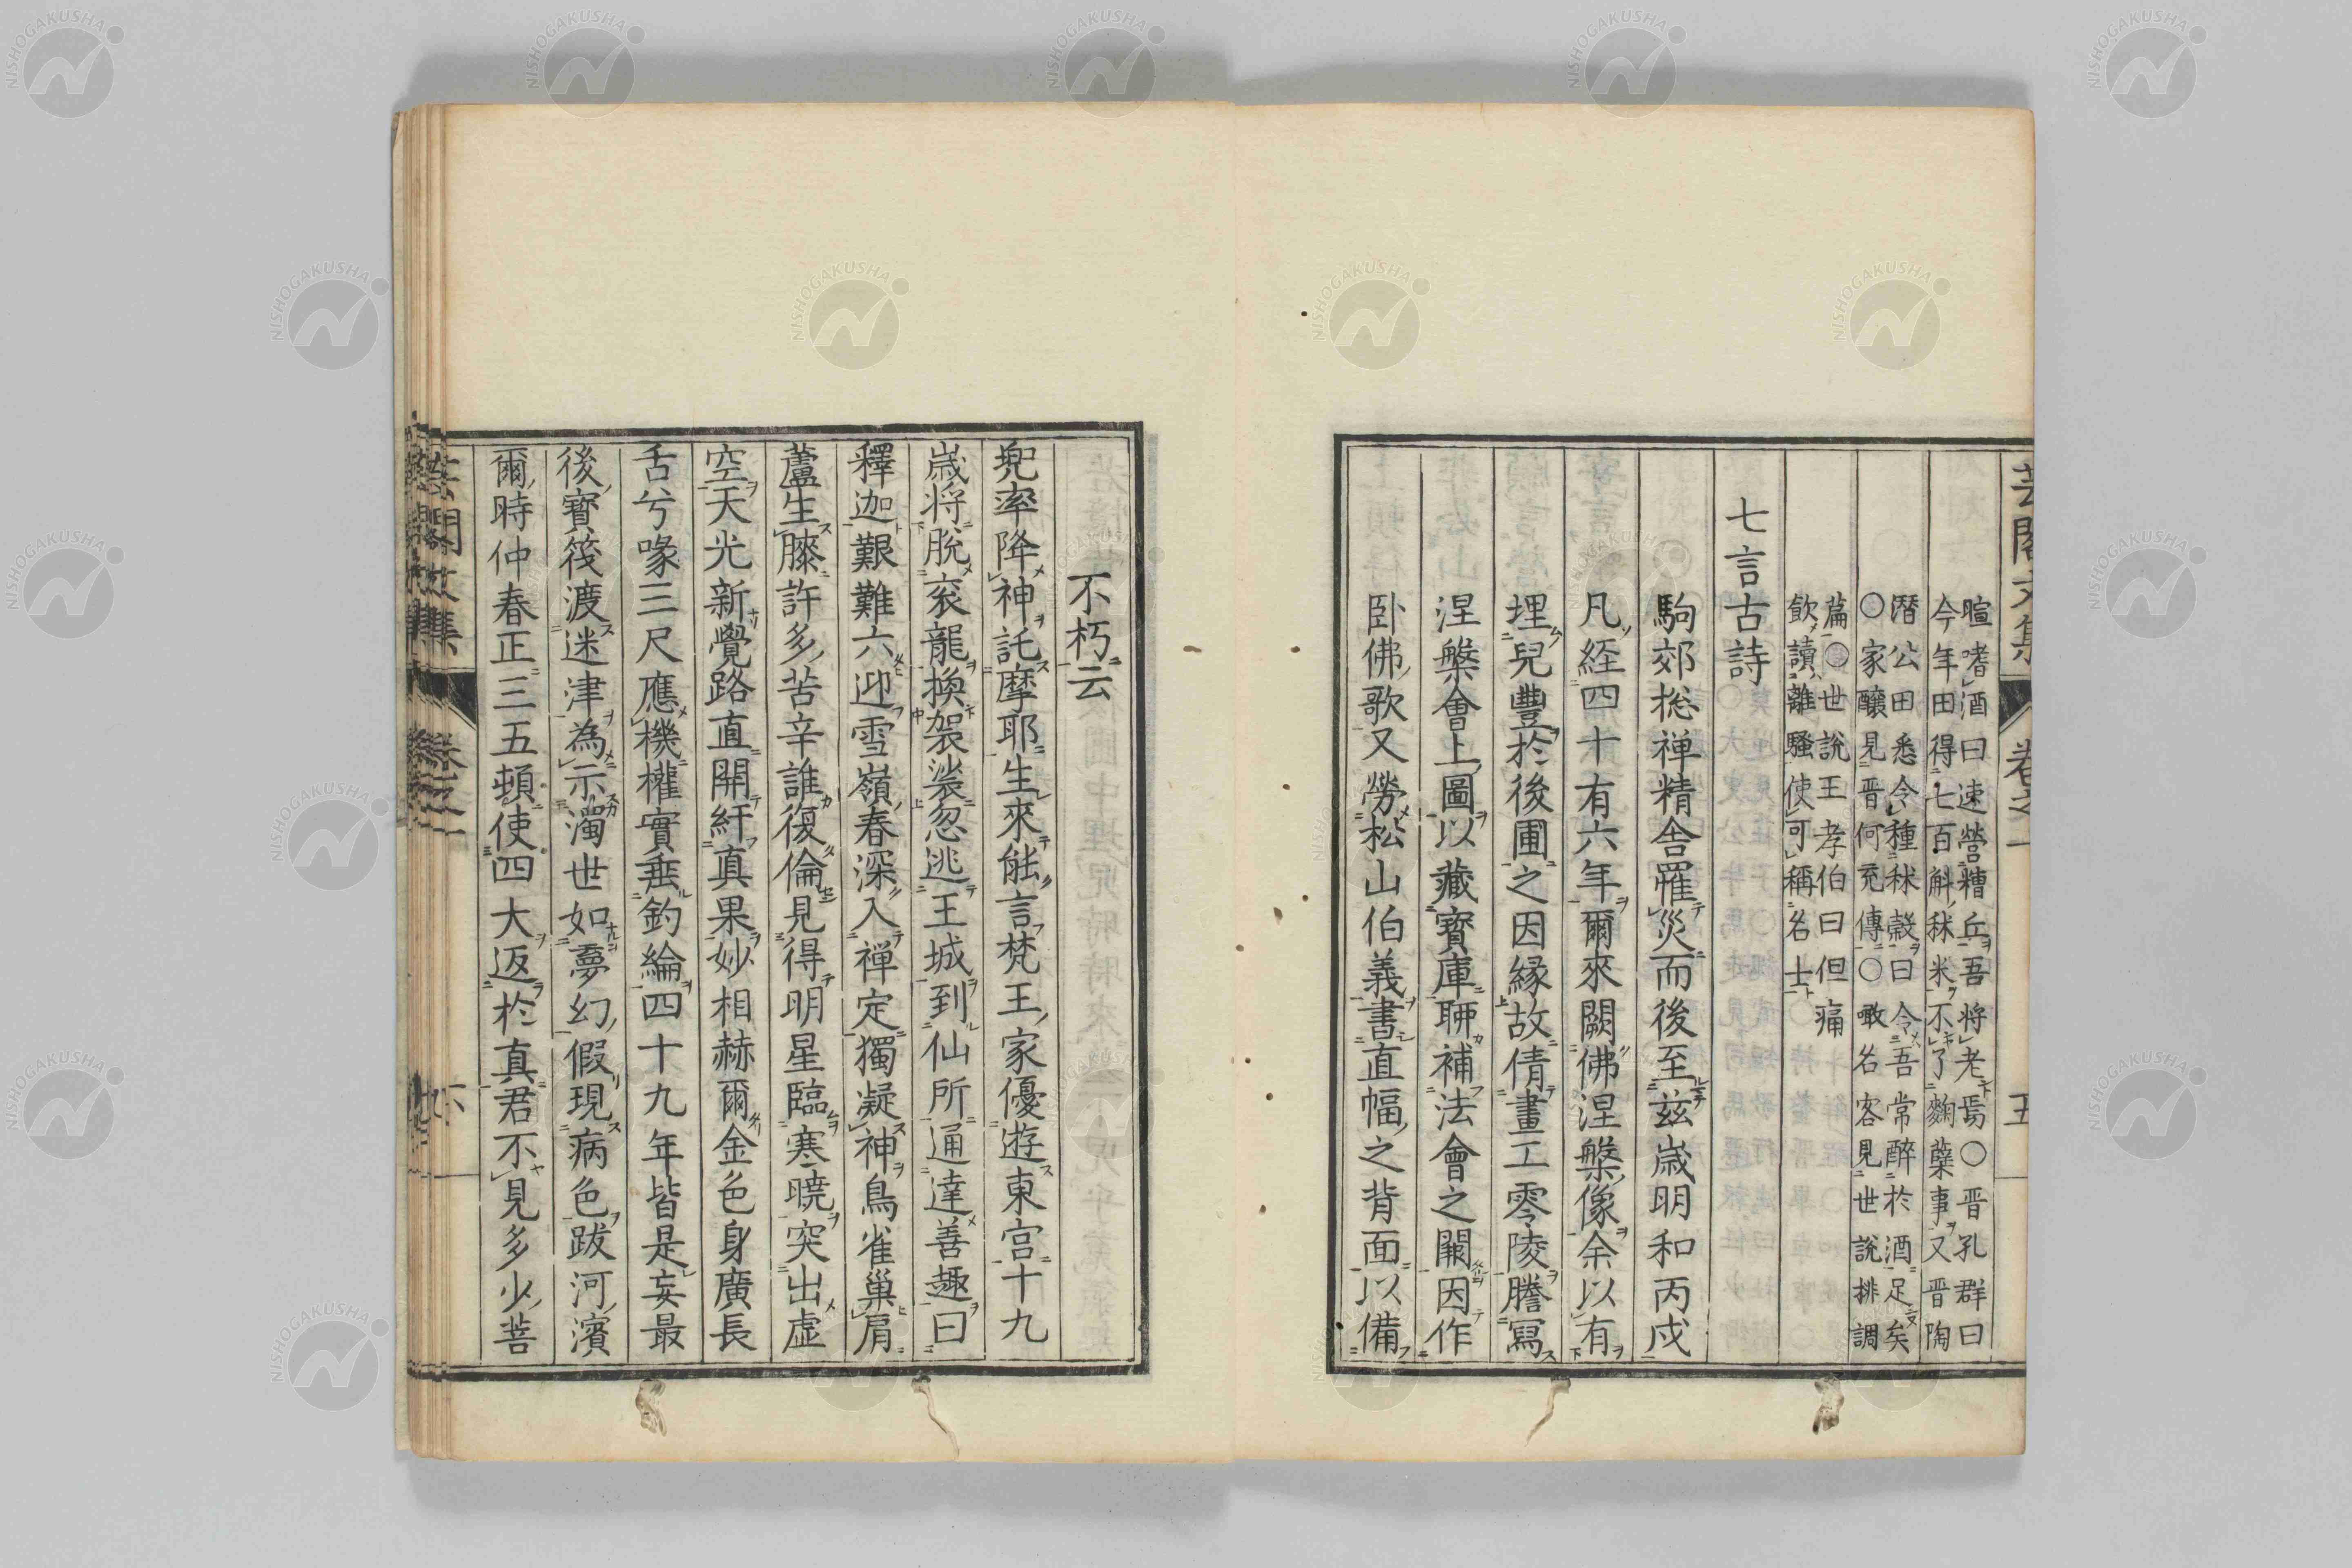 芸閣文集 卷之一 五
暄嗜酒曰速營糟丘吾將老焉○晋孔群曰
今年田得七百斛秫米不了麴蘖事又晋陶
潛公田悉令種秫穀曰令吾常醉於酒足矣
○家釀見晋何充傳○噉名客見世說排調
篇○世說王孝伯曰但痛
飲讀離騷使可稱名士
七言古詩
駒郊捴禅精舎罹災而後至茲歳明和丙戌
凡経四十有六年爾來闕佛涅槃像余以有
埋兒豐於後圃之因縁故倩畫工零陵謄寫
涅槃會上圖以藏寶庫聊補法會之闕因作
卧佛歌又勞松山伯義書直幅之背面以備
不朽云
兜率降神託摩耶生來能言梵王家優遊東宮十九
歳将脱衮龍換袈裟忽逃王城到仙所通達善趣曰
釋迦艱難六迎雪嶺春深入禅定獨凝神鳥雀巢肩
蘆生膝許多苦辛誰復倫見得明星臨寒曉突出虛
空天光新覺路直開紆真果妙相赫爾金色身廣長
舌兮喙三尺應機權實垂釣綸四十九年皆是妄最
後寶筏渡迷津為示濁世如夢幻假現病色跋河濱
爾時仲春正三五頓使四大返於真君不見多少菩
芸閣文集 卷之一